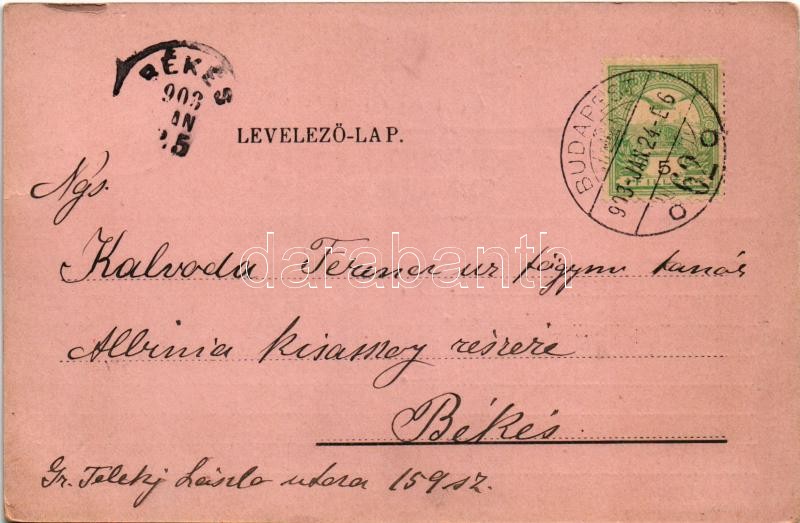 BÉKÉS
903
JAN
25
LEVELEZŐ-LAP.
BUDAPEST
903 JAN 24
5
62
Ngs.
Kalvoda Ferencz ur főgymn tanár
Albinia kisasszony részére
Békés
Gr. Teleky László utcza 159 sz.
darabanth